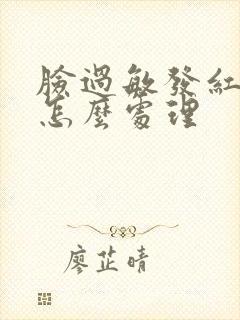 臉過敏發紅
怎麼處理
廖芷晴